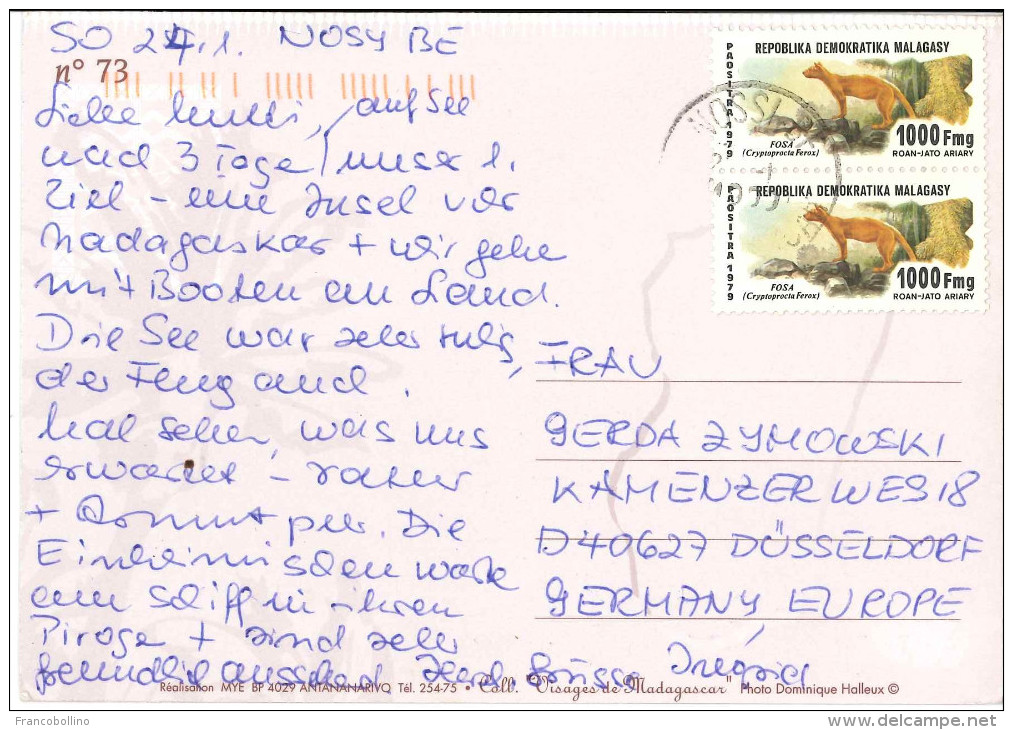 SO 24.1. NOSY BE
n° 73
Liebe Mutti, auf See
nach 3 Tage / unser 1.
Ziel - eine Insel vor
Madagaskar + wir gehe
mit Booten an Land.
Die See war sehr ruhig,
der Flug auch.
Mal sehen, was uns
erwartet -
+ kommt per. Die
Einheimischen
am Schiff in ihren
Piroge + sind sehr
freundlich Herzl. Grüsse Ingrid
REPOBLIKA DEMOKRATIKA MALAGASY
PAOSITRA 1979
FOSA
(Cryptoprocta Ferox)
1000 Fmg
ROAN-JATO ARIARY
REPOBLIKA DEMOKRATIKA MALAGASY
PAOSITRA 1979
FOSA
(Cryptoprocta Ferox)
1000 Fmg
ROAN-JATO ARIARY
FRAU
GERDA ZYMOWSKI
KAMENZER WEG 18
D 40627 DÜSSELDORF
GERMANY, EUROPE
Réalisation MYE BP 4029 ANTANANARIVO Tél. 254-75 • Coll. "Visages de Madagascar" Photo Dominique Halleux ©
Francobollino
www.delcampe.net